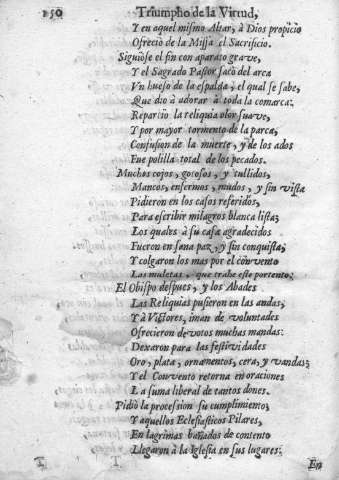 150 Triumpho de la Virtud,
Y en aquel mismo Altar, à Dios propicio
Ofreciò de la Missa el Sacrificio.
Siguiòse el fin con aparato grave,
Y el Sagrado Pastor sacò del arca
Vn hueso de la espalda, el qual se sabe,
Que diò à adorar à toda la comarca:
Repartiò la reliquia olor suave,
Y por mayor tormento de la parca,
Confusion de la muerte, y de los ados
Fue polilla total de los pecados.
Muchos cojos, gotosos, y tullidos,
Mancos, enfermos, mudos, y sin vista
Pidieron en los casos referidos,
Para escribir milagros blanca lista;
Los quales à su casa agradecidos
Fueron en sana paz, y sin conquista;
Y colgaron los mas por el convento
Las muletas, que trahe este portento;
El Obispo despues, y los Abades
Las Reliquias pusieron en las andas;
Y à Victores, iman de voluntades
Ofrecieron devotos muchas mandas:
Dexaron para las festividades
Oro, plata, ornamentos, cera, y vandas;
Y el Convento retorna en oraciones
La suma liberal de tantos dones.
Pidiò la procession su cumplimiento;
Y aquellos Eclesiasticos Pilares,
En lagrimas bañados de contento
Llegaron à la Iglesia en sus lugares:
En